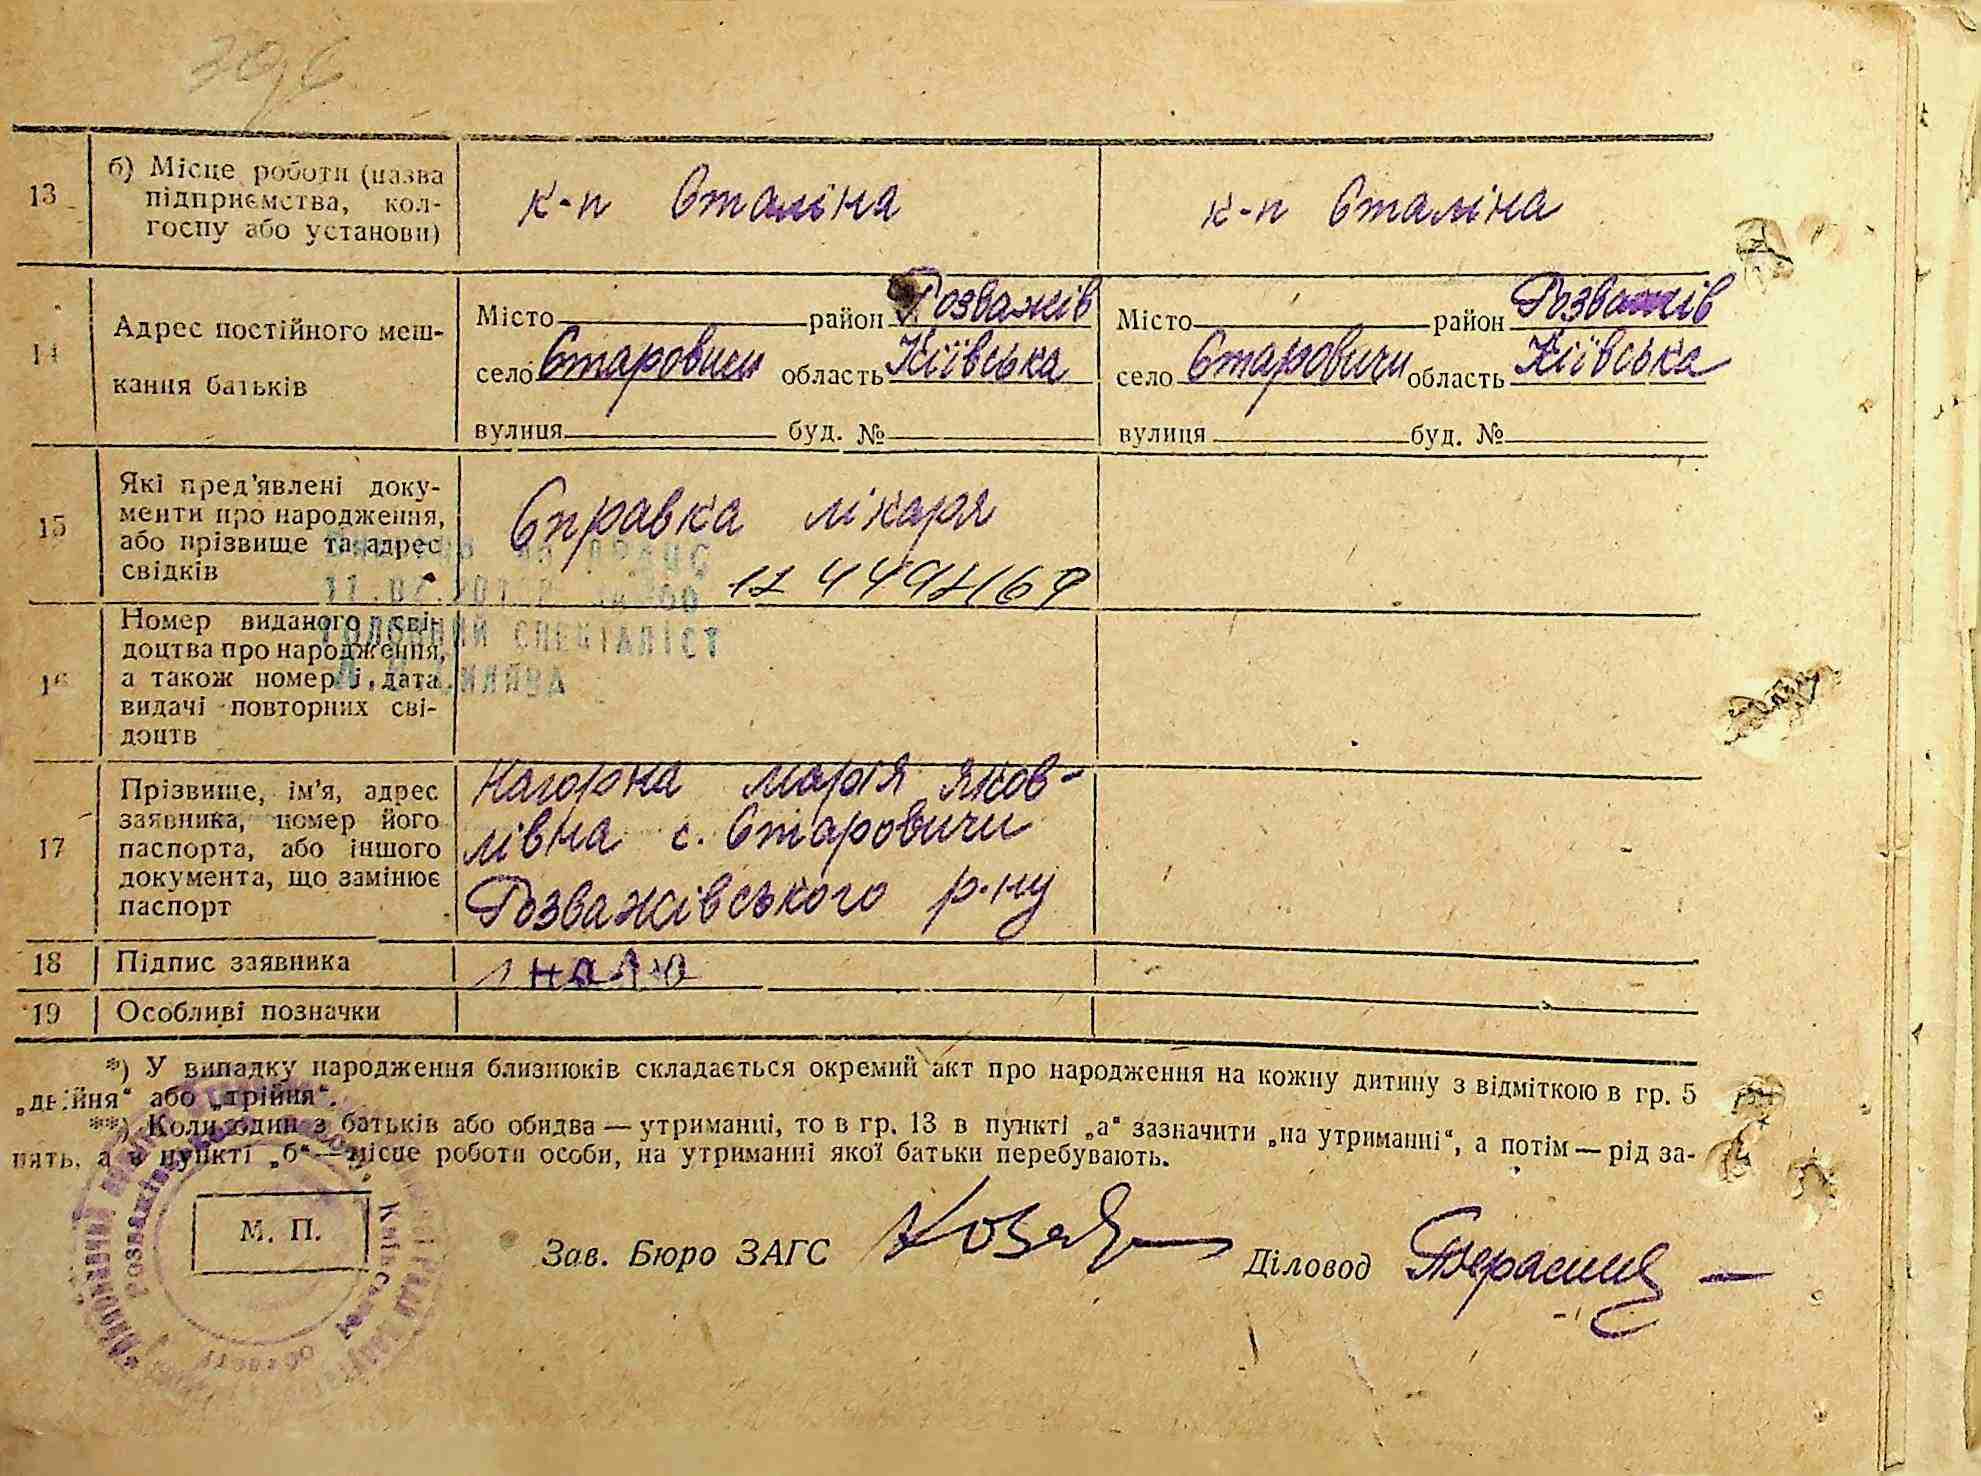 13
б) Місце роботи (назва
підприємства, кол-
госпу або установи)
к-п Сталіна
к-п Сталіна
14
Адрес постійного меш-
кання батьків
Місто район Розважів
село Старовичи область Київська
вулиця буд. №
Місто район Розважів
село Старовичи область Київська
вулиця буд. №
15
Які пред'явлені доку-
менти про народження,
або прізвище та адрес
свідків
Справка лікаря
16
Номер виданого сві-
доцтва про народження,
а також номер і дата
видачі повторних сві-
доцтв
ГОЛОВНИЙ СПЕЦІАЛІСТ
17
Прізвище, ім'я, адрес
заявника, номер його
паспорта, або іншого
документа, що замінює
паспорт
Нагорна Марія Яков-
лівна с. Старовичи
Розважівського р-ну
18
Підпис заявника
19
Особливі позначки
*) У випадку народження близнюків складається окремий акт про народження на кожну дитину з відміткою в гр. 5
„двійня“ або „трійня“.
**) Коли один з батьків або обидва — утриманці, то в гр. 13 в пункті „а“ зазначити „на утриманні“, а потім — рід за-
нять, а в пункті „б“ — місце роботи особи, на утриманні якої батьки перебувають.
М. П.
Зав. Бюро ЗАГС
Діловод
Київської
області